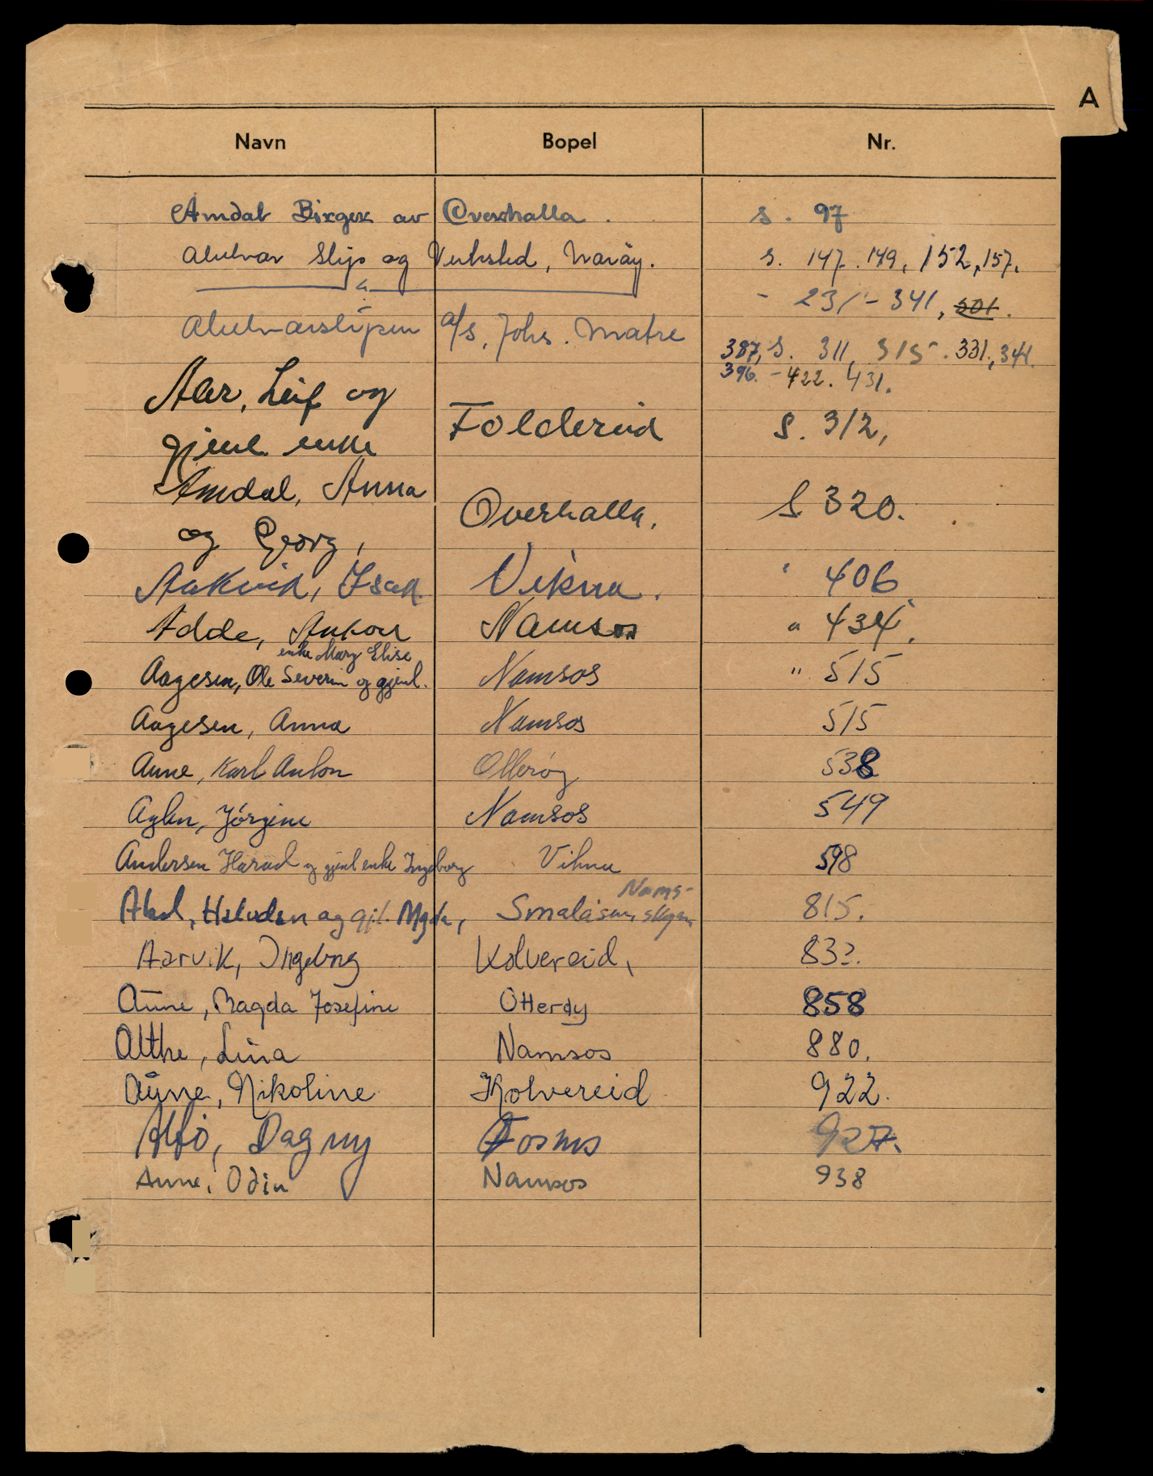 A
Navn Bopel Nr.
Amdal Birger av Overhalla. s. 97
Slip og Verksted, s. 147. 149, 152, 157.
- 231 - 341, 501.
a/s, Johs. Matre
387, s. 311, 315. 331, 341.
396. - 422. 431.
Leif og
Foldereid S. 312,
gjenl. enke
Amdal, Anna
Overhalla. S 320.
og Georg,
Isak Vikna. " 406
Adde, Namsos " 434.
enke Mary Elise
Aagesen, Ole Severin og gjenl. Namsos " 515
Aagesen, Anna Namsos 515
Aune, Karl Anton Otterøy 538
Aglen, Jørgine Namsos 549
Andersen Harald og gjenl enke Ingeborg Vikna 598
Nams-
Halvdan og gjl. 815.
Aarvik, Ingeborg Kolvereid, 832.
Aune, Magda Josefine Otterøy 858
Lina Namsos 880.
Aune, Nikoline Kolvereid 922.
Dagny Fosnes 927.
Aune, Odin Namsos 938